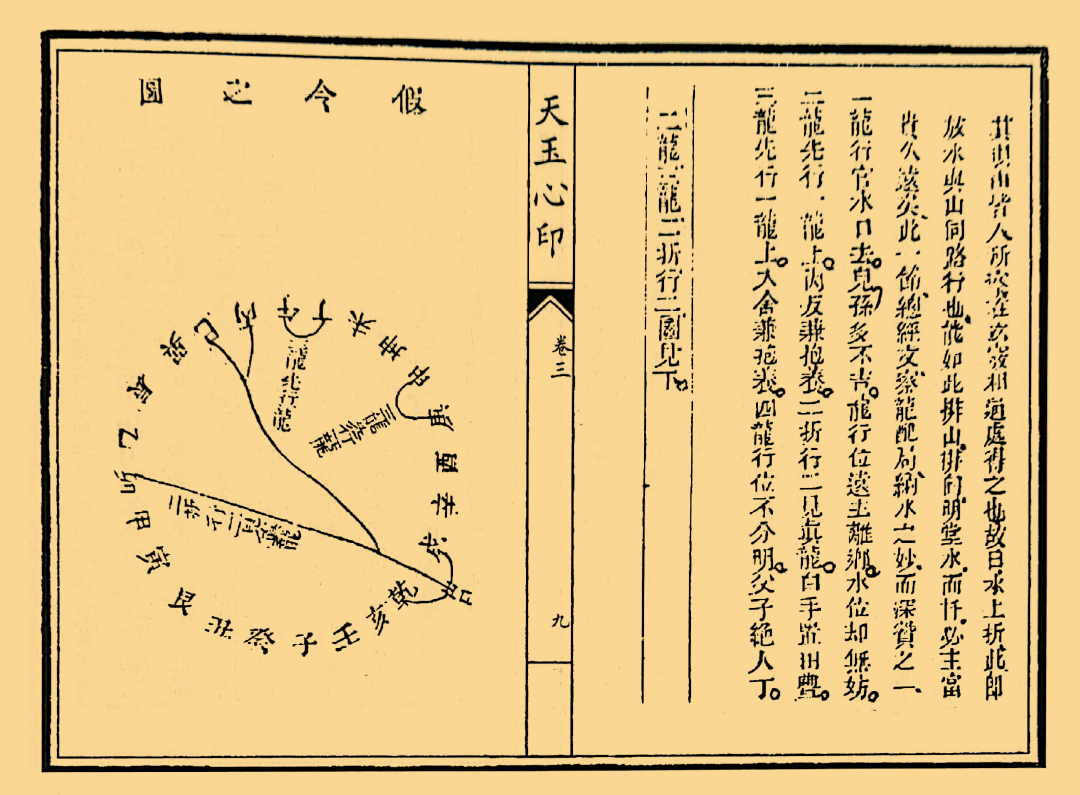 其退而皆人所次在玄竅相通處得之也故曰水上折此即
放水與山同路行也能如此排山排向明堂水而忤必主富
貴久遠矣此一節總經文察龍配局納水之妙而深贊之一
一龍行官水口去兒孫多不吉龍行位遠主離鄉水位却無妨
二龍先行一龍上丙反兼抱養二折行二見眞龍白手置田豊
三龍先行一龍上大舍兼抱養四龍行位不分明父子絶人丁
二龍三龍二折行二圖見下
天玉心印
卷三
九
假令之圖
二龍先行龍
二龍行龍
二折行二見眞龍
巽巳丙午丁未坤申庚酉辛戌乾亥壬子癸丑艮寅甲卯乙辰
口